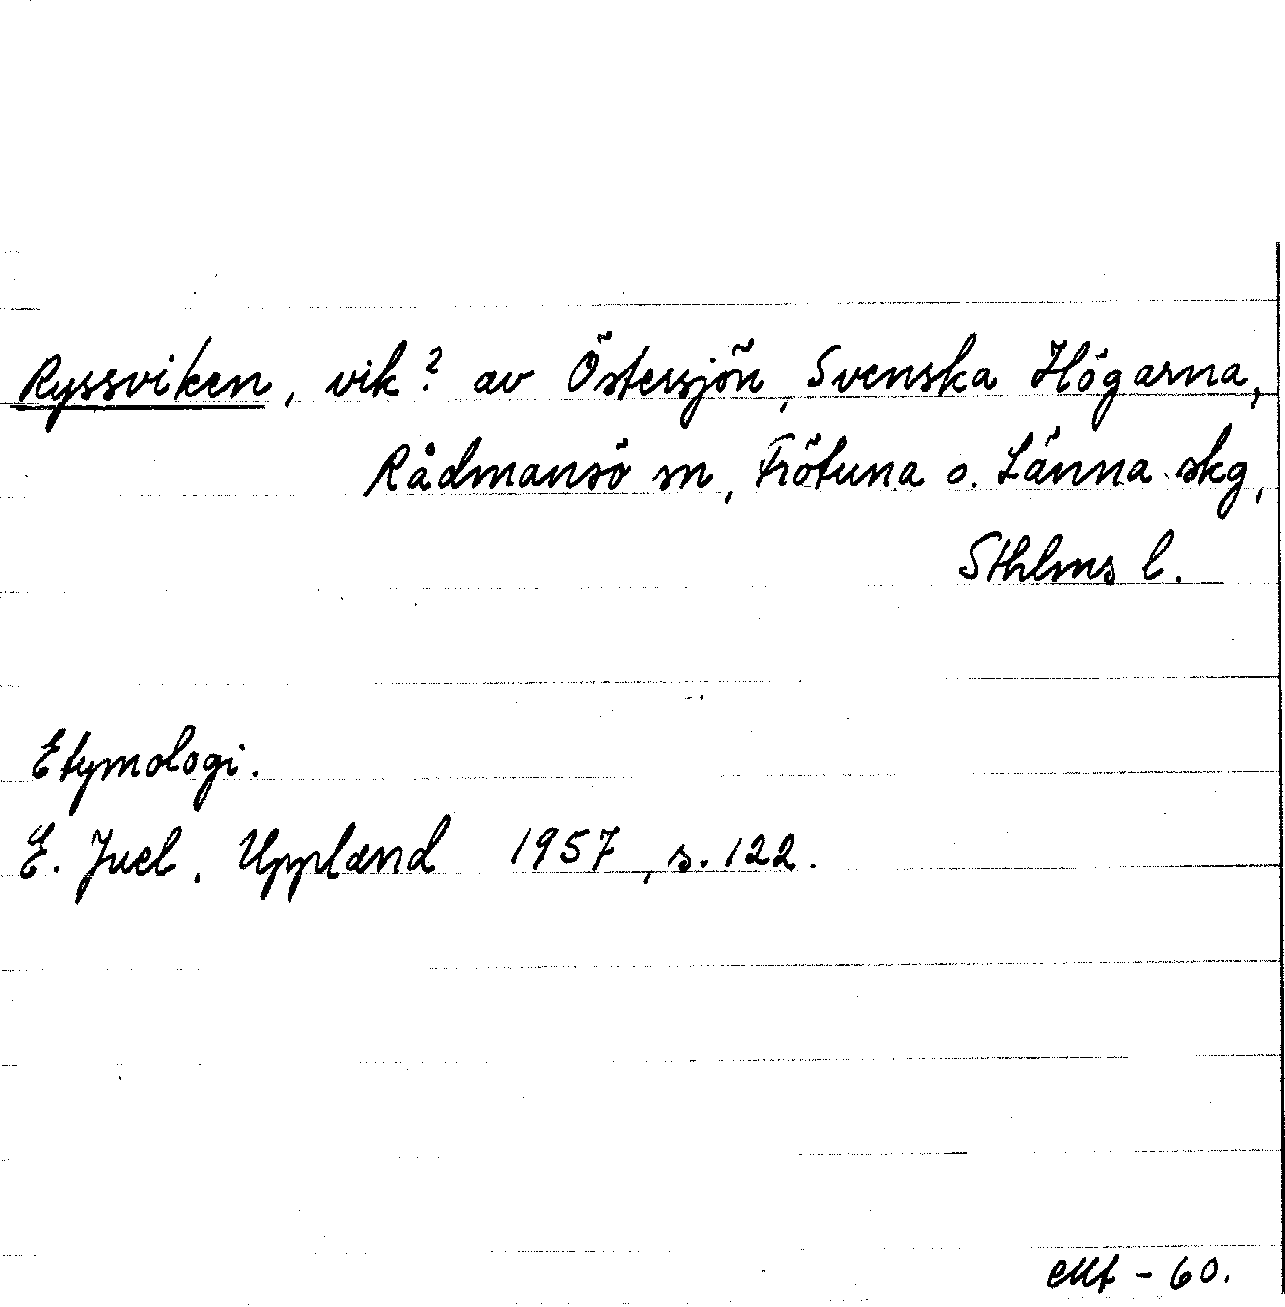 Ryssviken, vik? av Östersjön, Svenska Högarna,
Rådmansö sn, Frötuna o. Länna skg,
Sthlms l.
Etymologi.
E. Juel, Uppland 1957, s. 122.
- 60.